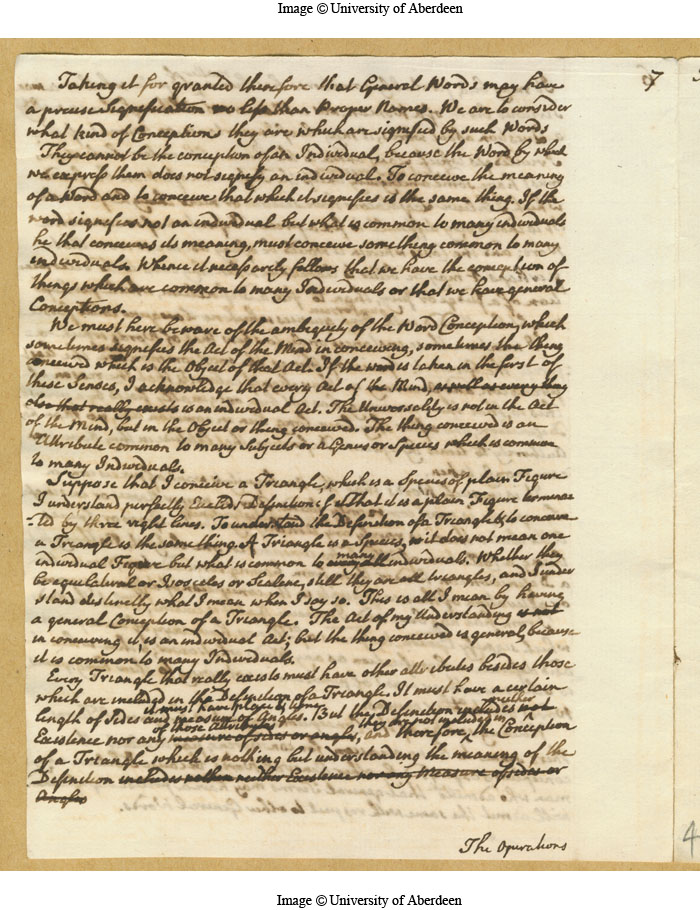 Image © University of Aberdeen
7
Taking it for granted therefore that General Words may have
a precise Signification no less than Proper Names. We are to consider
what kind of Conceptions they are which are signified by such Words
They cannot be the conception of an Individual, because the Word by which
we express them does not signify an individual. To conceive the meaning
of a Word and to conceive that which it signifies is the same thing. If the
word signifies not an individual but what is common to many individuals
he that conceives its meaning, must conceive something common to many
individuals. Whence it necessarily follows that we have the conception of
things which are common to many Individuals or that we have general
Conceptions.
We must here beware of the ambiguity of the Word Conception, which
sometimes signifies the Act of the Mind in conceiving, sometimes the thing
conceived which is the Object of that Act. If the word is taken in the first of
these Senses, I acknowledge that every Act of the Mind, as well as every thing
else that really exists is an individual Act. The Universality is not in the Act
of the Mind, but in the Object or thing conceived. The thing conceived is an
Attribute common to many Subjects or a Genus or Species which is common
to many Individuals.
Suppose that I conceive a Triangle, which is a Species of plain Figure
I understand perfectly Euclids Definition of it That it is a plain Figure termina
-ted by three right lines. To understand the Definition of a Triangle & to conceive
a Triangle is the same thing. A Triangle is a Species, it does not mean one
individual Figure but what is common to every all many individuals. Whether they
be equilateral or Isosceles or Scalene, still they are all triangles, and I under
stand distinctly what I mean when I say so. This is all I mean by having
a general Conception of a Triangle. The Act of my Understanding is not
in conceiving it, is an individual Act; but the thing conceived is general, because
it is common to many Individuals.
Every Triangle that really exists must have other attributes besides those
which are included in the Definition of a Triangle. It must have a certain
length of Sides and measure of Angles. it must have place & time But the Definition includes not neither
Existence nor any measure of sides or angles, of those Attributes and therefore they are not included in the Conception
of a Triangle which is nothing but understanding the meaning of the
Definition includes neither Existence nor any Measure of sides or
Angles
The Operations
4
Image © University of Aberdeen